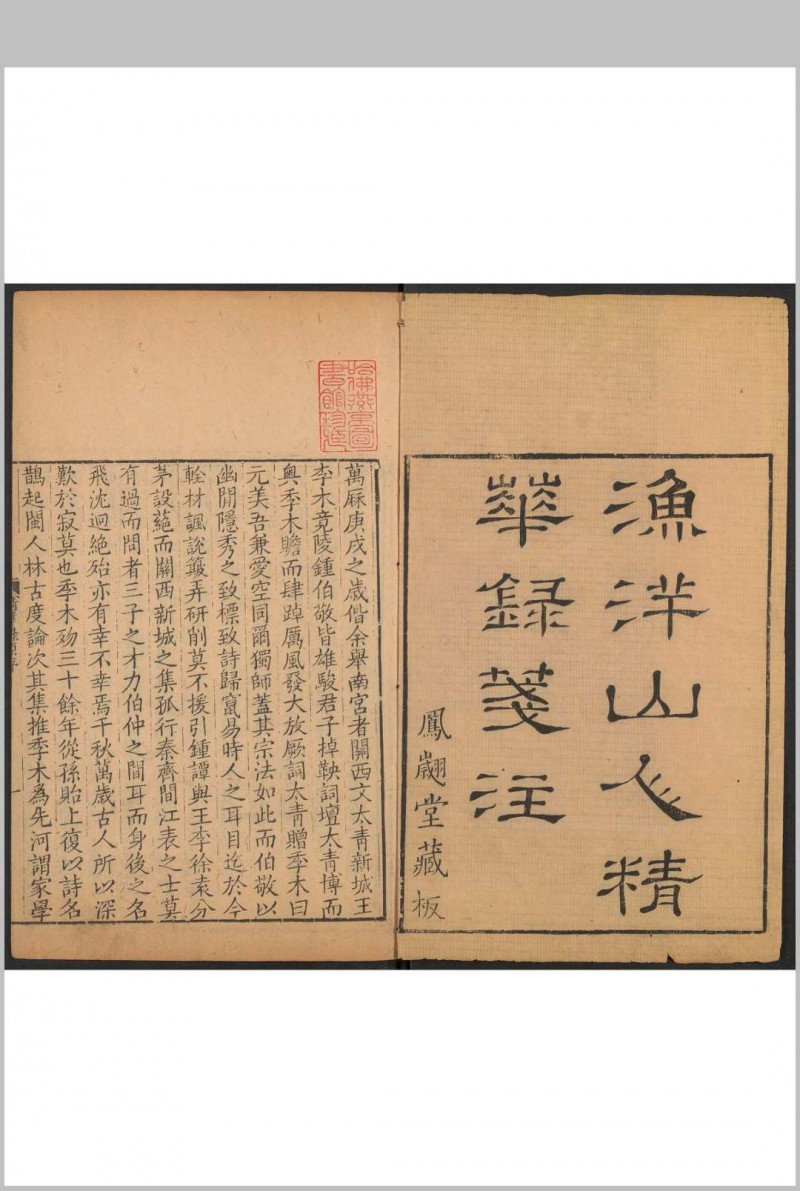 漁洋山人精
華録箋注
鳳翽堂藏板
哈佛燕京圖
書館珍藏
萬厤庚戌之歲偕余舉南宮者關西文太青新城王
季木竟陵鍾伯敬皆雄駿君子掉鞅詞壇太青博而
奧季木贍而肆踔厲風發大放厥詞太青贈季木曰
元美吾兼愛空同爾獨師蓋其宗法如此而伯敬以
幽閒隱秀之致標致詩歸竄易時人之耳目迄於今
輇材諷說簸弄研削莫不援引鍾譚與王李徐袁分
茅設蕝而關西新城之集孤行秦齊間江表之士莫
有過而問者三子之才力伯仲之間耳而身後之名
飛沈迥絕殆亦有幸不幸焉千秋萬歲古人所以深
歎於寂莫也季木殁三十餘年從孫貽上復以詩名
鵲起閩人林古度論次其集推季木爲先河謂家學